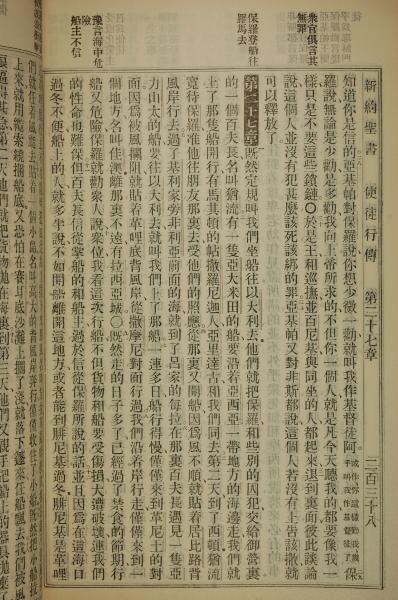 新約聖書 使徒行傳 第二十七章 二百三十八
衆官俱言其
無罪
知道你是信的亞基帕對保羅說你想少微一動就叫我作基督徒阿或作你這樣勸我幾乎叫我作基督徒了保
羅說無論是少勸是多勸我向上帝所求的不但你一個人就是凡今天聽我的都要像我一
樣只是不要這些鎖鏈〇於是王和巡撫並百尼基與同坐的人都起來退到裏面彼此談論
說這個人並沒有犯甚麼該死該綁的罪亞基帕又對非斯都說這個人若沒有上告該撒就
可以釋放了
保羅登船往
羅馬去
第二十七章既然定規叫我們坐船往以大利去他們就把保羅和些別的囚犯交給御營裏
的一個百夫長名叫猶流有一隻亞大米田的船要沿着亞西亞一帶地方的海邊走我們就
上了那隻船開行有馬其頓的帖撒羅尼迦人亞里達古和我們同去第二天到了西頓猶流
寬待保羅准他往朋友那裏去受他們的照應從那裏又開船因為風不順就貼着居比路背
風岸行去過了基利家旁非利亞前面的海就到了呂家的每拉在那裏百夫長遇見一隻亞
力山太的船要往以大利去就叫我們上了那船一連多日船行得慢僅僅來到革尼土的對
面因為被風攔阻就貼着革哩底背風岸從撒摩尼對面行過我們沿着岸行走僅僅來到一
個地方名叫佳澳離那裏不遠有拉西亞城〇既然走的日子多了已經過了禁食的節期行
豫言海中危
險
船主不信
船又危險保羅就勸衆人說衆位我看這次行船不但貨物和船要受傷損大遭破壞連我們
的性命也難保但百夫長信從掌船的和船主過於信從保羅所說的話並且因為在這海口
過冬不便船上的人就多半說不如開船離開這地方或者能到腓尼基過冬腓尼基是革哩